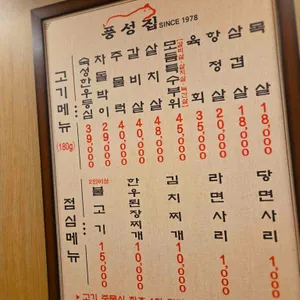 풍성집 SINCE 1978
고기메뉴
(180g)
숙성한우등심
39,000
차돌박이
29,000
주물럭
40,000
갈비살
48,000
모듬특수부위
45,000
육회
35,000
항정살
20,000
삼겹살
18,000
목살
18,000
점심메뉴
2인이상
불고기
15,000
한우된장찌개
10,000
김치찌개
10,000
라면사리
1,000
당면사리
1,000